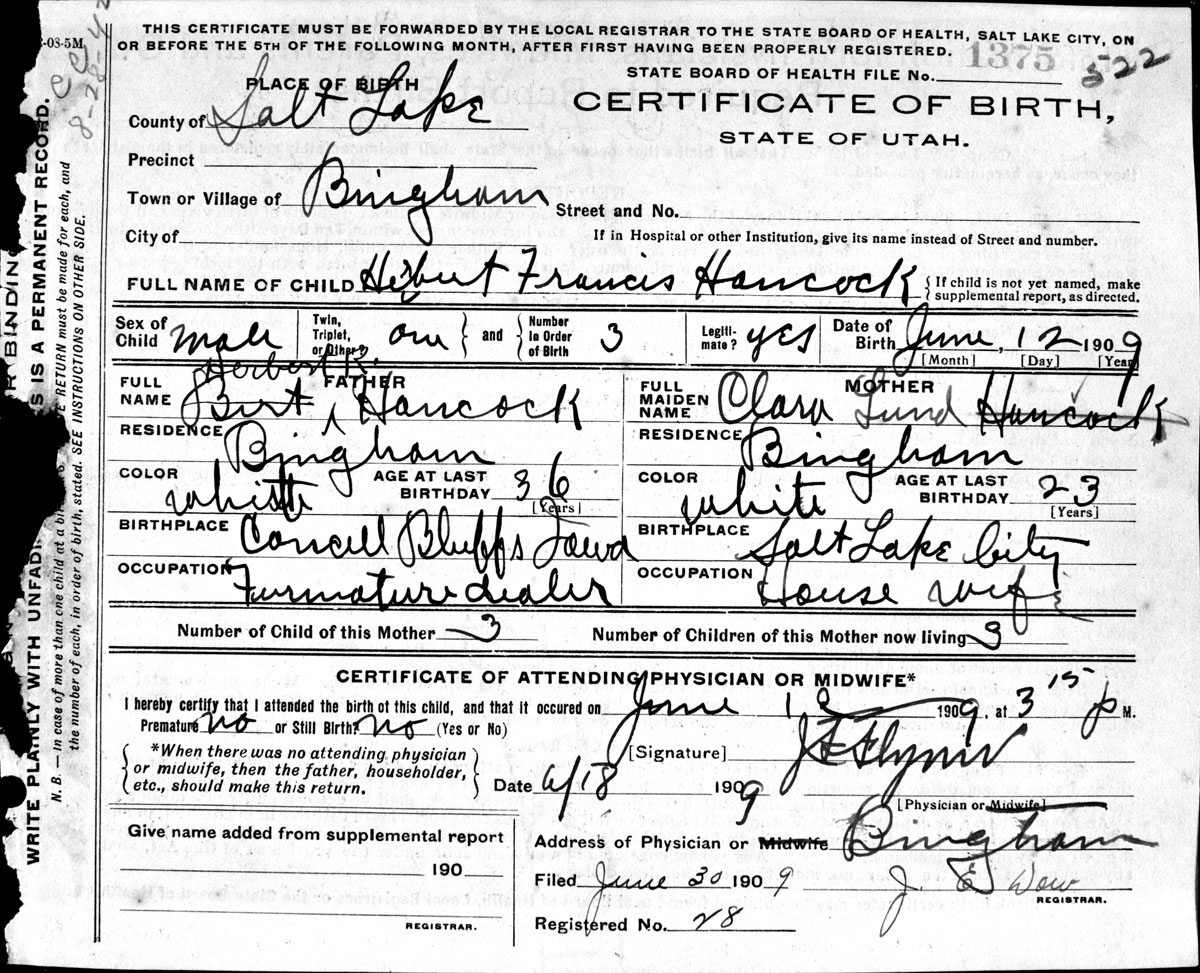 THIS CERTIFICATE MUST BE FORWARDED BY THE LOCAL REGISTRAR TO THE STATE BOARD OF HEALTH, SALT LAKE CITY, ON
OR BEFORE THE 5TH OF THE FOLLOWING MONTH, AFTER FIRST HAVING BEEN PROPERLY REGISTERED.
-08-5M
8-28-42
1375
322
PLACE OF BIRTH
STATE BOARD OF HEALTH FILE No.
County of Salt Lake
CERTIFICATE OF BIRTH,
STATE OF UTAH.
Precinct
Town or Village of Bingham Street and No.
City of If in Hospital or other Institution, give its name instead of Street and number.
FULL NAME OF CHILD Hebert Francis Hancock { If child is not yet named, make
supplemental report, as directed.
Sex of Child Male Twin, Triplet, or Other? one } and { Number in Order of Birth 3 Legitimate? yes Date of Birth June, 12 1909
[Month] [Day] [Year]
Herbert K.
FATHER
FULL NAME Bert ^ Hancock
RESIDENCE Bingham
COLOR White AGE AT LAST BIRTHDAY 36 [Years]
BIRTHPLACE Concell Bluffs Iowa
OCCUPATION Furnature dealer
MOTHER
FULL MAIDEN NAME Clara Lund Hancock
RESIDENCE Bingham
COLOR White AGE AT LAST BIRTHDAY 23 [Years]
BIRTHPLACE Salt Lake City
OCCUPATION House wife
Number of Child of this Mother 3 Number of Children of this Mother now living 3
CERTIFICATE OF ATTENDING PHYSICIAN OR MIDWIFE*
I hereby certify that I attended the birth of this child, and that it occured on June 12 1909, at 3 15 P M.
Premature? no or Still Birth? no (Yes or No)
{ *When there was no attending physician
or midwife, then the father, householder,
etc., should make this return. }
[Signature] J E Flynn
Date 6/18 1909
[Physician or Midwife]
Give name added from supplemental report
190
REGISTRAR.
Address of Physician or Midwife Bingham
Filed June 30 1909 J. E. Dow
REGISTRAR.
Registered No. 28
R BINDING
WRITE PLAINLY WITH UNFADI
S IS A PERMANENT RECORD.
N. B.—In case of more than one child at a bi E RETURN must be made for each, and
the number of each, in order of birth, stated. SEE INSTRUCTIONS ON OTHER SIDE.